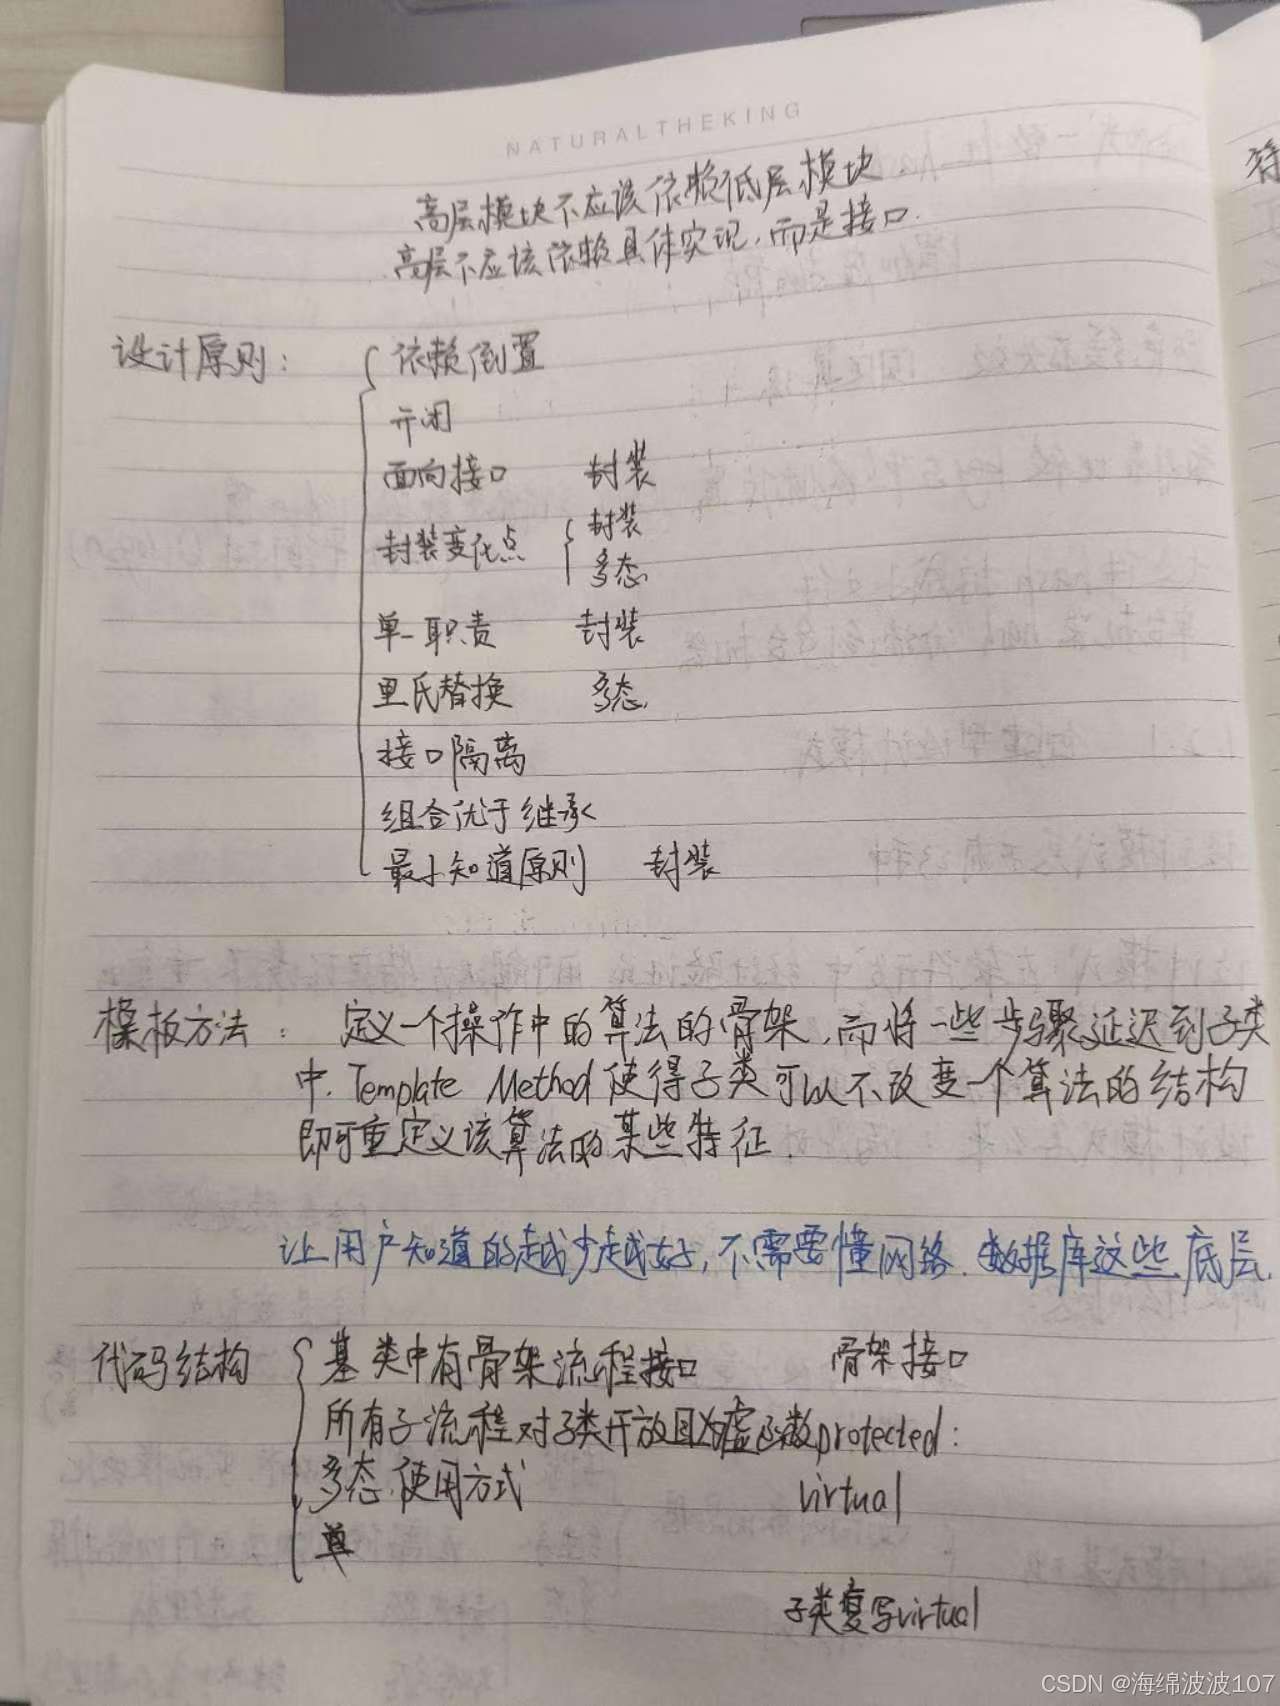 NATURALTHEKING
高层模块不应该依赖低层模块
高层不应该依赖具体实现，而是接口.
设计原则： 依赖倒置
开闭
面向接口 封装
封装变化点 封装
多态
单一职责 封装
里氏替换 多态
接口隔离
组合优于继承
最小知道原则 封装
模板方法： 定义一个操作中的算法的骨架，而将一些步骤延迟到子类
中. Template Method使得子类可以不改变一个算法的结构
即可重定义该算法的某些特征.
让用户知道的越少越好，不需要懂网络、数据库这些底层.
代码结构 基类中有骨架流程接口 骨架接口
所有子流程对子类开放且为虚函数protected:
多态使用方式 virtual
单
子类复写virtual
CSDN @海绵波波107